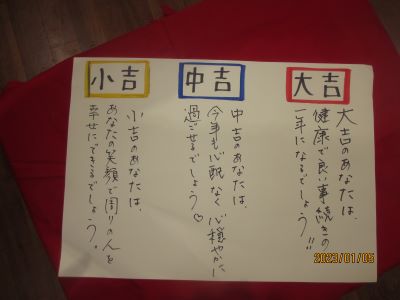 大吉
大吉のあなたは、
健康で良い事続きの
一年になるでしょう!!
中吉
中吉のあなたは、
今年も心配なく心穏やかに
過ごせるでしょう♡
小吉
小吉のあなたは、
あなたの笑顔で周りの人を
幸せにできるでしょう。
2023/01/05